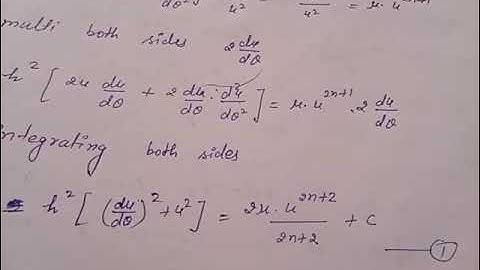 multi both sides 2 du/dθ
h² [ 2u du/dθ + 2 du/dθ . d²u/dθ² ] = μ . u²ⁿ⁺¹ . 2 du/dθ
integrating both sides
h² [ (du/dθ)² + u² ] = 2μ . u²ⁿ⁺² / 2n+2 + c
①